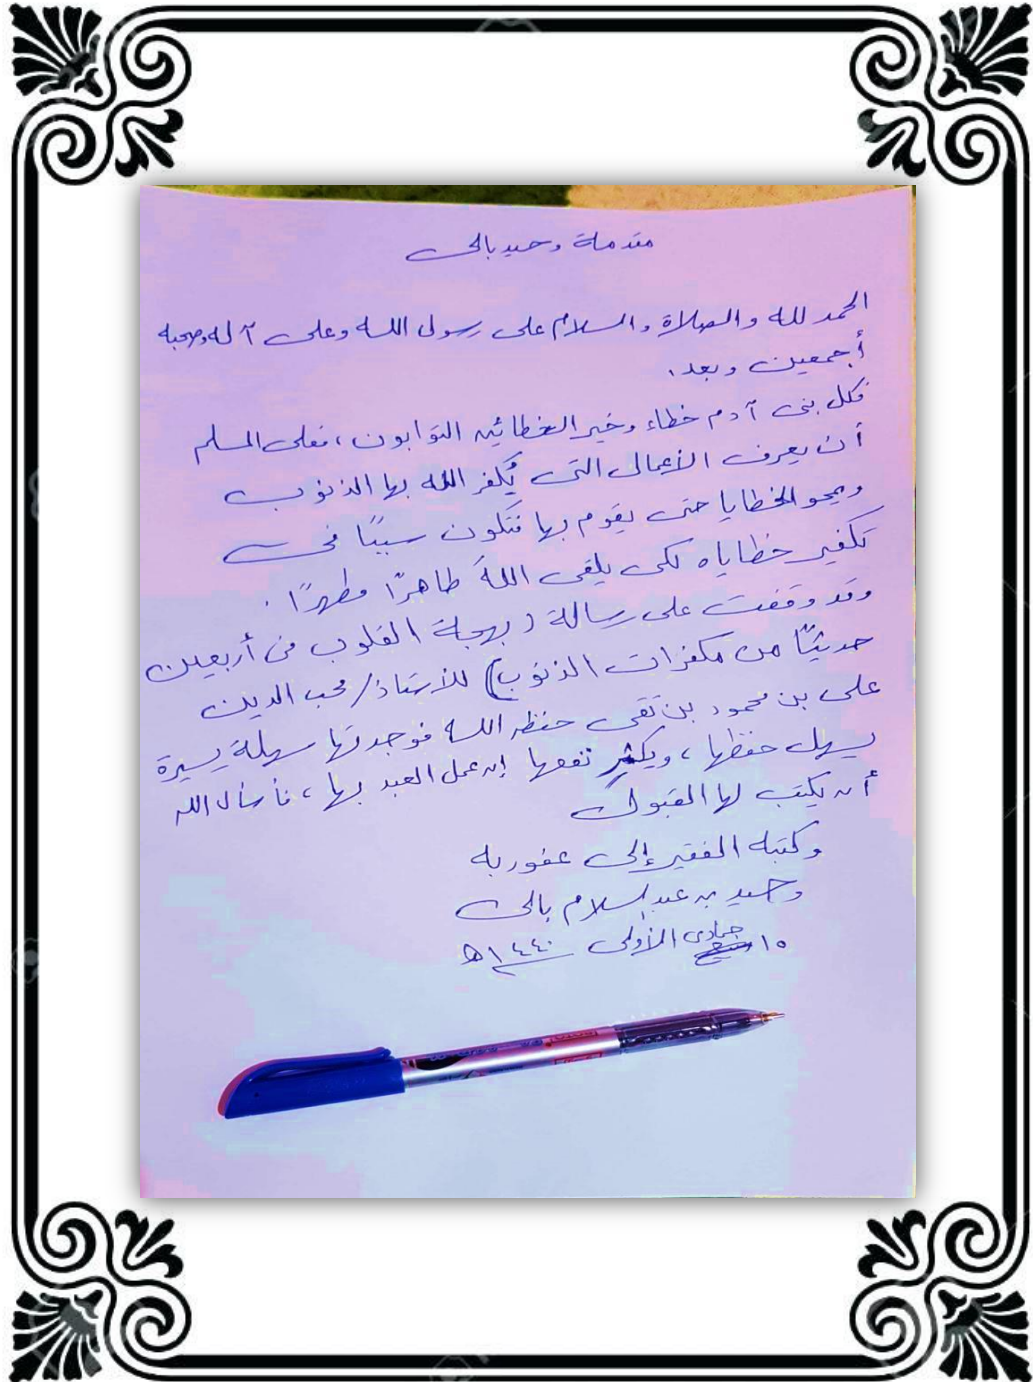 مقدمة وحيد بالى
الحمد لله والصلاة والسلام على رسول الله وعلى آله وصحبه
أجمعين وبعد.
فكل بنى آدم خطاء وخير الخطائين التوابون، فعلى المسلم
أن يعرف الأعمال التى يُكفر الله بها الذنوب
ويمحو الخطايا حتى يقوم بها فتكون سببًا فى
تكفير خطاياه لكى يلقى اللهَ طاهرًا مطهرًا.
وقد وقفت على رسالة (بهجة القلوب فى أربعين
حديثًا من مكفرات الذنوب) للأستاذ/ محب الدين
على بن محمود بن تقى حفظه الله فوجدتها سهلة يسيرة
يسهل حفظها، ويكثر نفعها إن عمل العبد بها، فأسأل الله
أن يكتب لها القبول
وكتبه الفقير إلى عفو ربه
وحيد بن عبد السلام بالى
١٥ جمادى الأولى ١٤٤٠ هـ